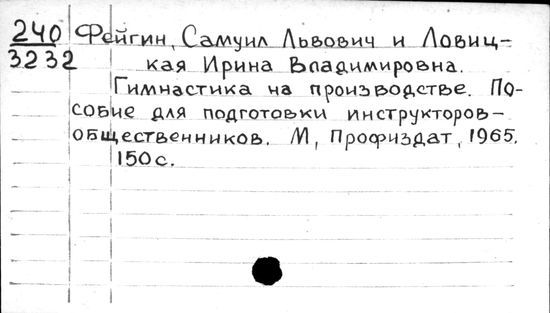 240 Фейгин, Самуил Львович и Ловиц-
3232 кая Ирина Владимировна.
Гимнастика на производстве. По-
собие для подготовки инструкторов-
общественников. М, Профиздат, 1965.
150с.